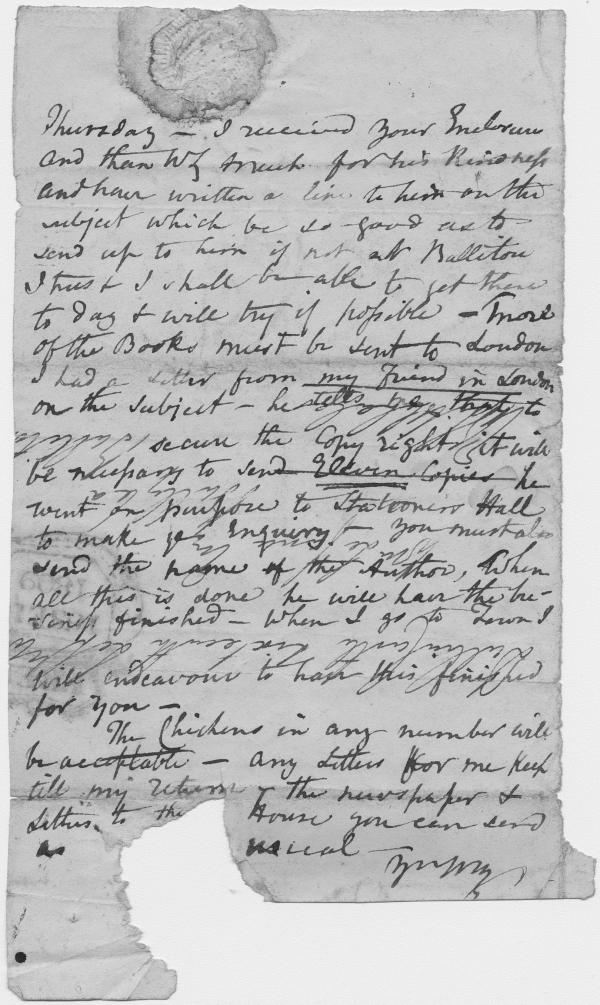 Thursday — I received your Enclosure
and thank Wg much for his Kindness
and have written a line to him on the
subject which be so good as to
send up to him if not at
I trust I shall be able to get there
to day & will try if possible — more
of the Books must be sent to London
I had a letter from my Friend in London
on the subject — he tells me that to
secure the Copy right it will
be necessary to send Eleven Copies he
went on purpose to Stationers Hall
to make ye Enquiry — you must also
send the name of the Author, When
all this is done he will have the bu-
siness finished — When I go to Town I
will endeavour to have this finished
for you —
The Chickens in any number will
be acceptable — any letters for me keep
till my return & the newspaper &
Letters to the House you can send
as usual —